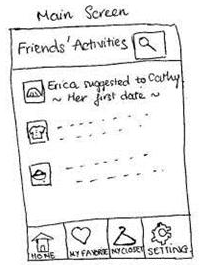 Main Screen
Friends' Activities
Erica suggested to Cathy
~ Her first date ~
HOME MY FAVORITE MY CLOSET SETTING